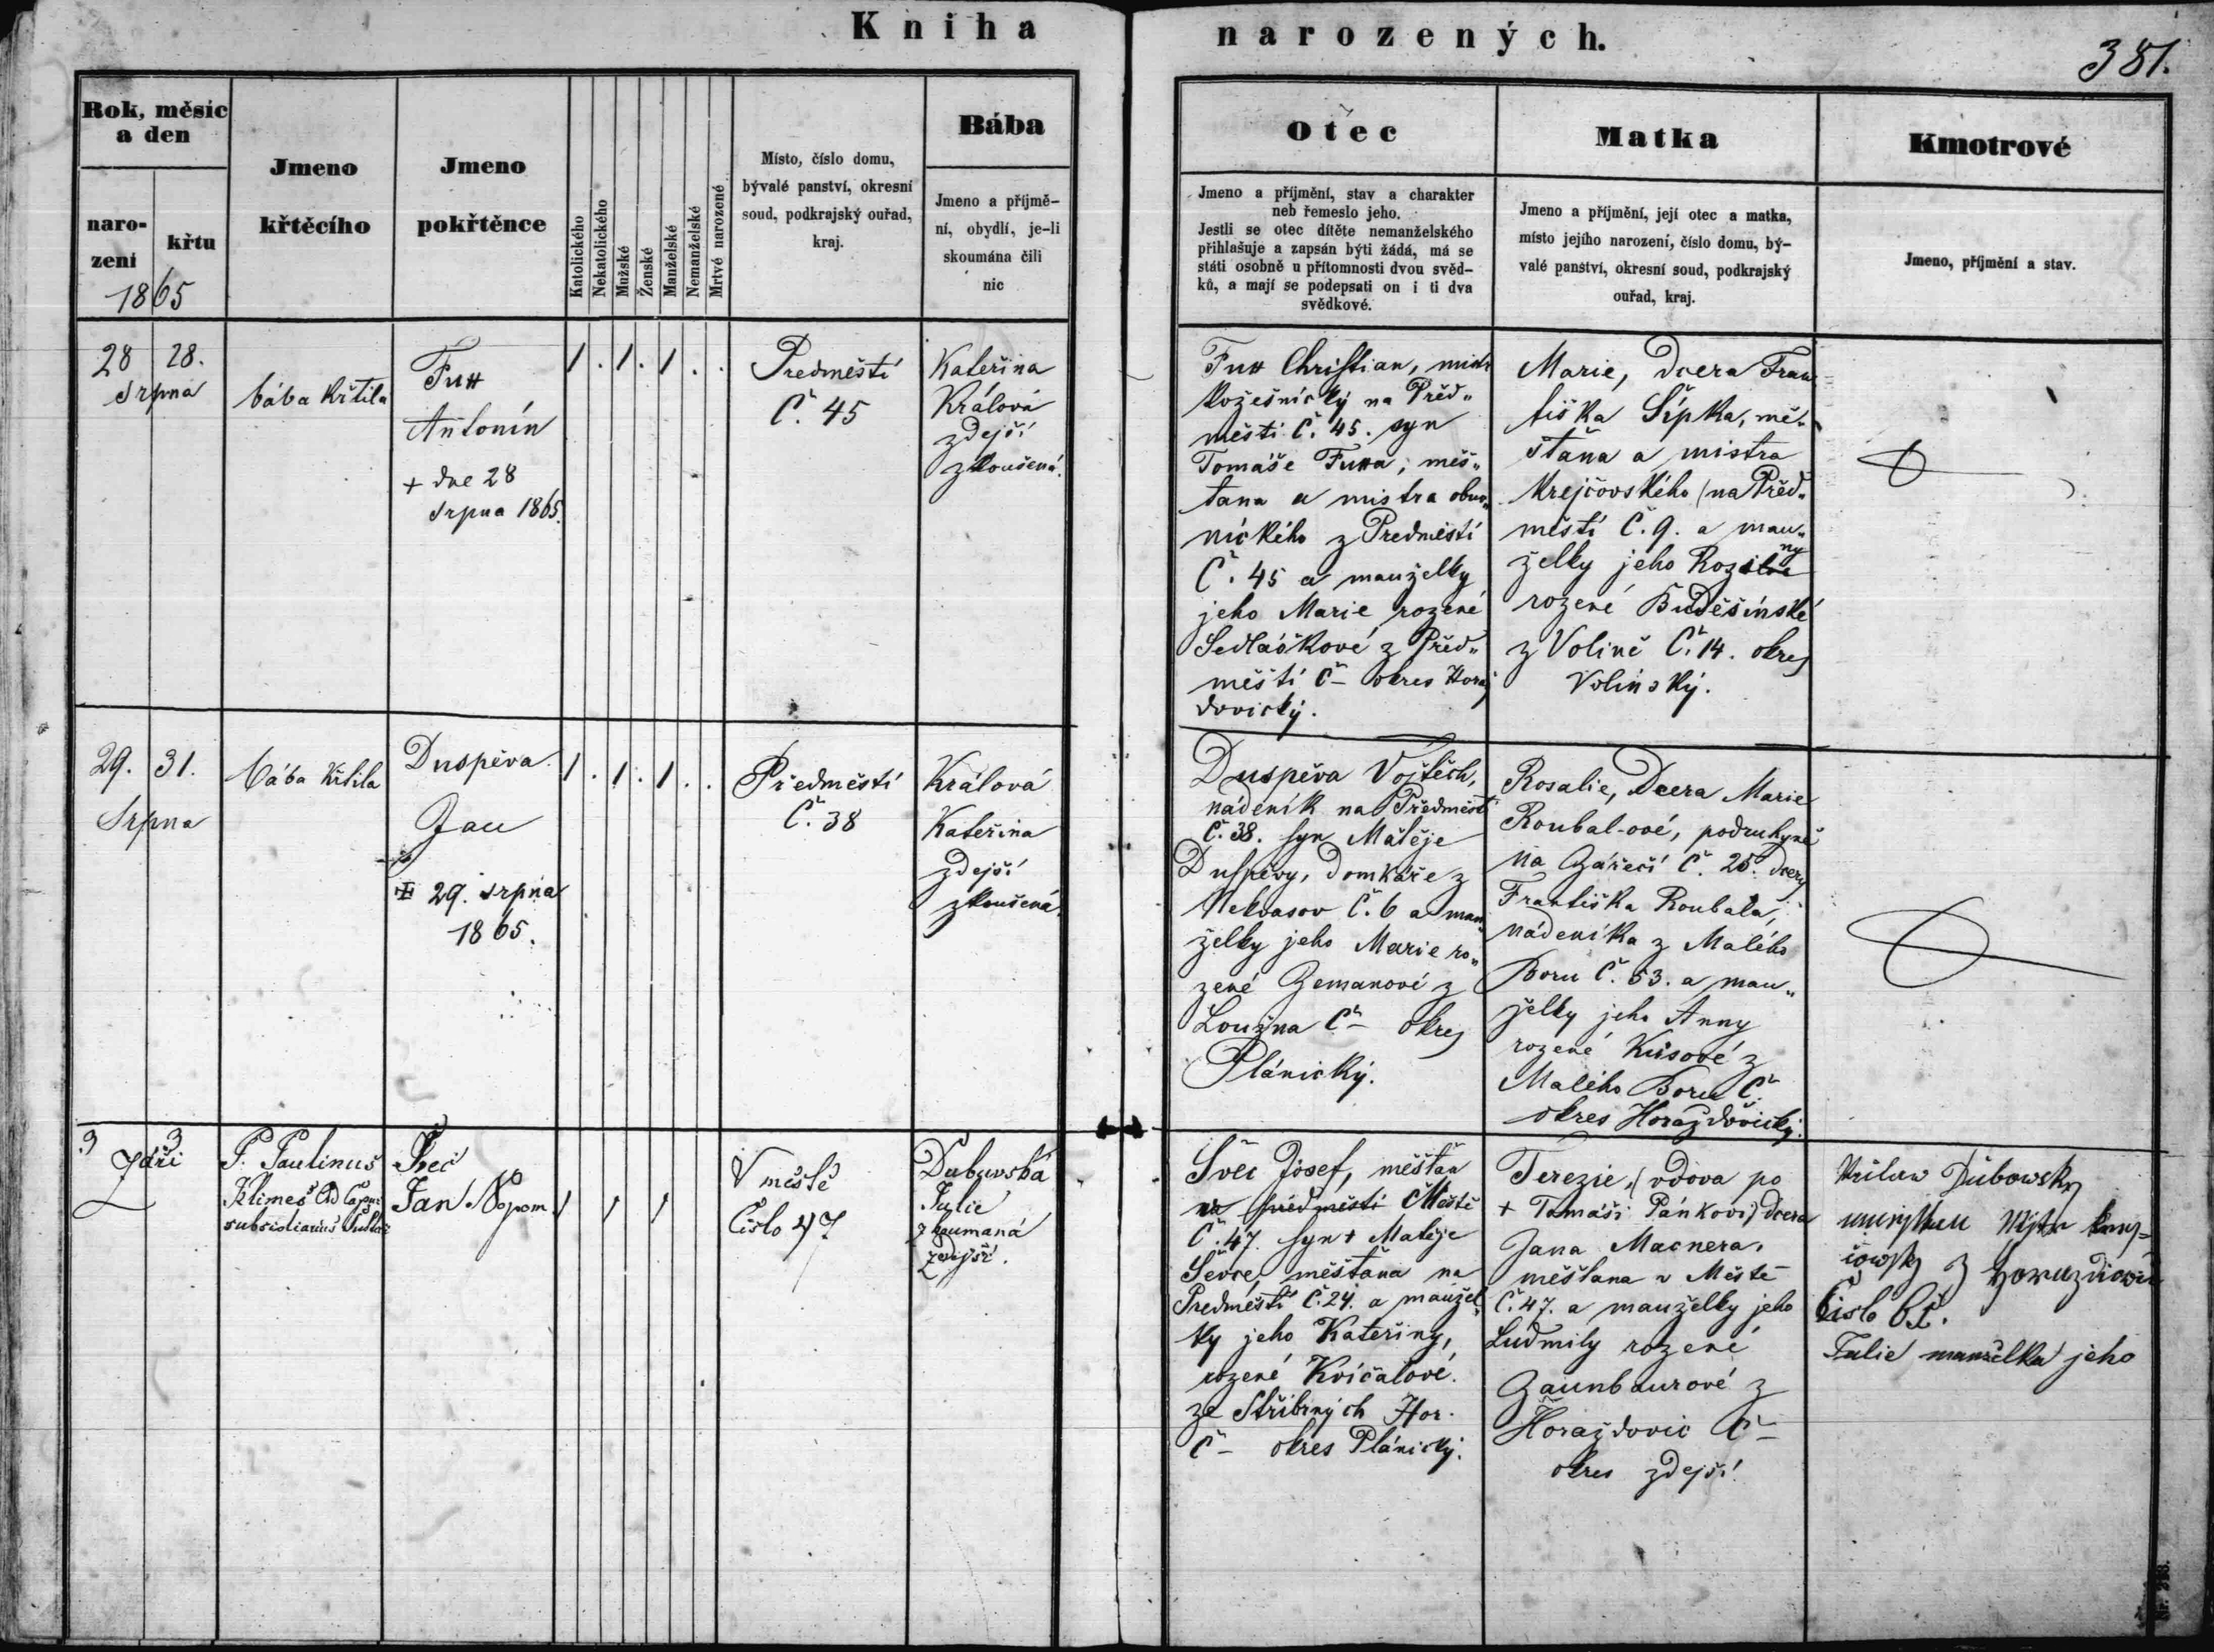 Kniha narozených.
381.
Rok, měsíc
a den
naro-
zení
křtu
1865
Jmeno
křtěcího
Jmeno
pokřtěnce
Katolického
Nekatolického
Mužské
Ženské
Manželské
Nemanželské
Mrtvé narozené
Místo, číslo domu,
bývalé panství, okresní
soud, podkrajský ouřad,
kraj.
Bába
Jmeno a příjmě-
ní, obydlí, je-li
skoumána čili
nic
Otec
Jmeno a příjmění, stav a charakter
neb řemeslo jeho.
Jestli se otec dítěte nemanželského
přihlašuje a zapsán býti žádá, má se
státi osobně u přítomnosti dvou svěd-
ků, a mají se podepsati on i ti dva
svědkové.
Matka
Jmeno a příjmění, její otec a matka,
místo jejího narození, číslo domu, bý-
valé panství, okresní soud, podkrajský
ouřad, kraj.
Kmotrové
Jmeno, příjmění a stav.
28 28.
Srpna
bába křtila
Antonín
+ dne 28
srpna 1865.
1 . 1 . 1 . .
Předměstí
Č. 45
Kateřina
Králová
zdejší
zkoušená.
Christian, mistr
kožešnický na Před„
městí Č. 45. syn
Tomáše měš„
ťana a mistra obuv„
nického z Předměstí
Č. 45 a manželky
jeho Marie rozené
Sedláčkové z Před„
městí Č – okres Horaž
dovický.
Marie, dcera Fran
tiška Šípka, mě„
šťana a mistra
krejčovského (na Před„
městí Č. 9. a man„
želky jeho
rozené Buděšínské
z Volině Č. 14. okres
Volínský.
29. 31.
Srpna
bába křtila
Duspěva
Jan
29. srpna
1865.
1 . 1 . 1 . .
Předměstí
Č. 38
Králová
Kateřina
zdejší
zkoušená.
Duspěva Vojtěch,
nádeník na Předměstí
Č. 38. syn Matěje
Duspěvy, domkáře z
Nekvasov Č. 6 a man„
želky jeho Marie ro„
zené Zemanové z
Loužna Č – okres
Plánický.
Rosalie, Dcera Marie
Roubal-ové, podruhyně
na Zářečí Č. 25. dcery
Františka Roubala,
nádeníka z Malého
Boru Č. 53. a man„
želky jeho Anny
rozené z
Malého Boru Č.
okres Horažďovický.
3 3
Září
P. Paulinus
Klimeš
subsidiarius
Švec
Jan Nepom.
1 1 1
V městě
Číslo 47
Dubovská
Julie
zkoumaná
zdejší.
Švec Josef, měšťan
na předměstí Městě
Č. 47. syn + Matěje
Ševce, měšťana na
Předměstí Č. 24. a manžel„
ky jeho Kateřiny,
rozené Kvíčalové.
ze Stříbrných Hor.
Č – okres Plánický.
Terezie, (vdova po
+ Tomáši Pánkovi) dcera
Jana Macnera,
měšťana v Městě
Č. 47. a manželky jeho
Ludmily rozené
Zaunbaurové z
Horažďovic Č –
okres zdejší.
Dubowsky
z
Číslo
Julie manželka jeho